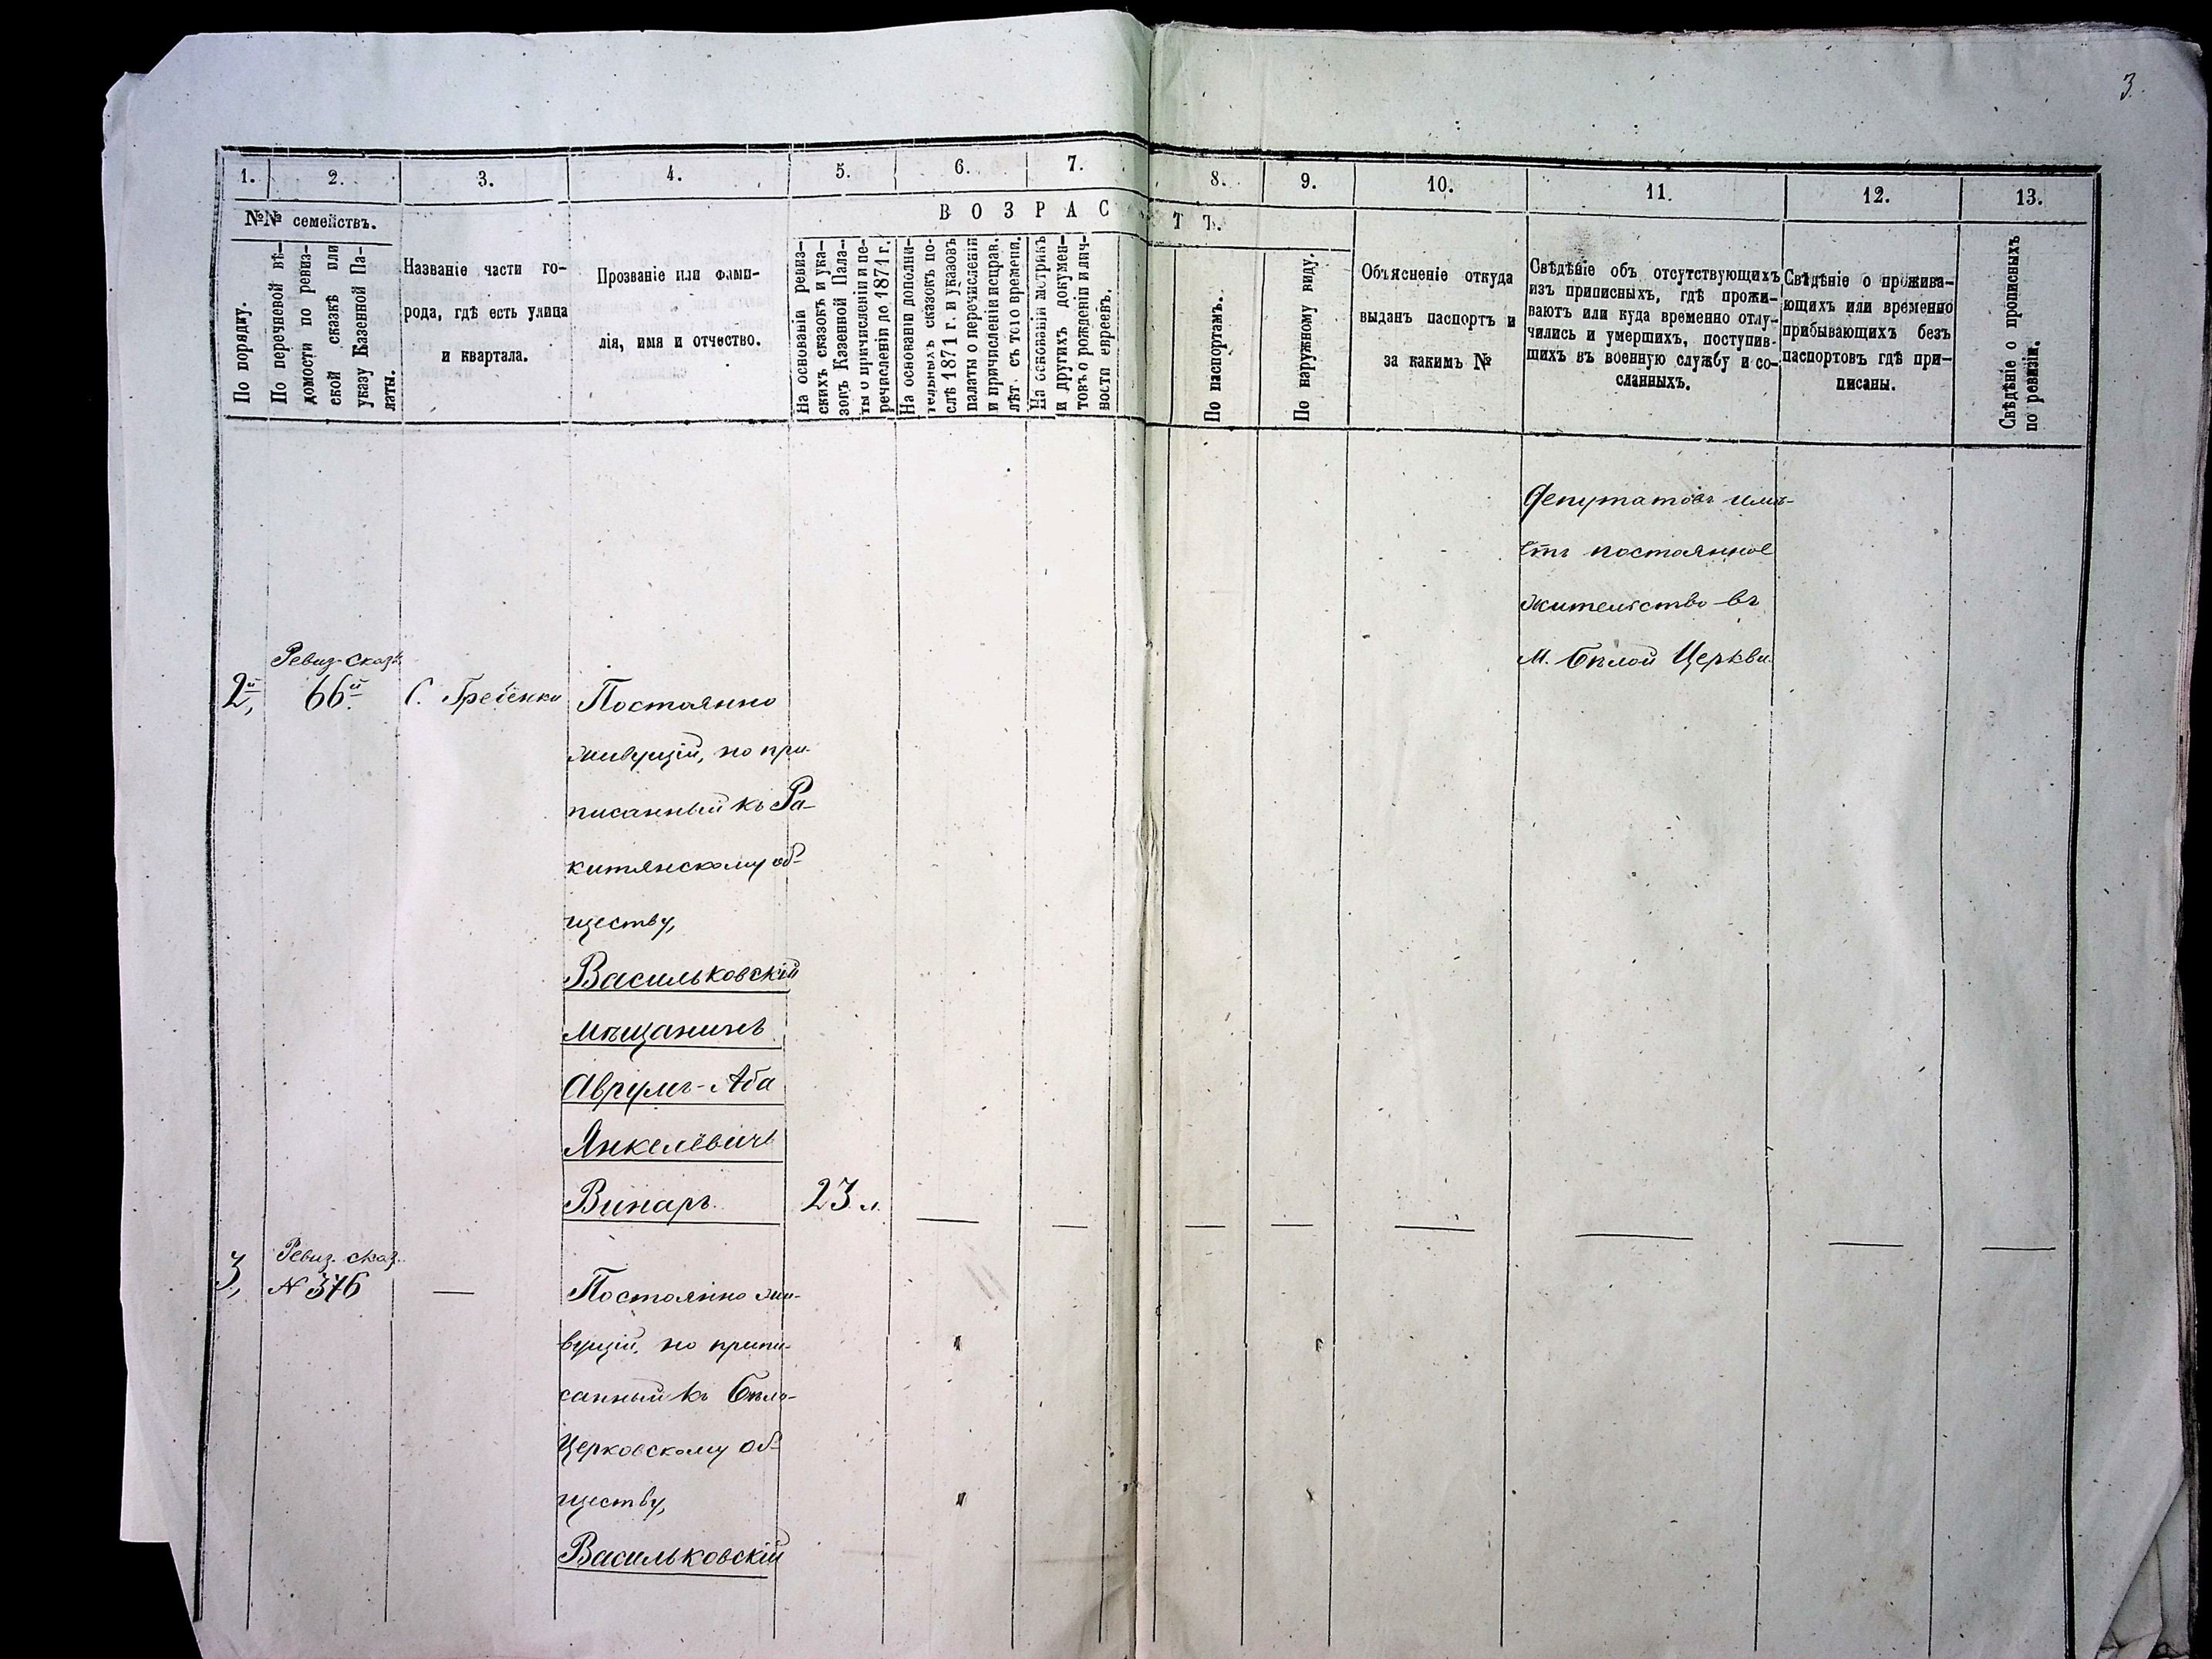 3.
1. 2. 3. 4. 5. 6. 7. 8. 9. 10. 11. 12. 13.
№№ семействъ.
ВОЗРАСТЪ.
По порядку.
По перечневой вѣ-
домости по ревиз-
ской сказкѣ или
указу Казенной Па-
латы.
Названіе части го-
рода, гдѣ есть улица
и квартала.
Прозваніе или фами-
лія, имя и отчество.
На основаніи ревиз-
скихъ сказокъ и ука-
зовъ Казенной Пала-
ты о причисленіи и пе-
речисленіи до 1871 г.
На основаніи дополни-
тельныхъ сказокъ по-
слѣ 1871 г. и указовъ
палаты о перечисленіи
и причисленіи исправ.
лѣт. съ того времени.
На основаніи метрикъ
и другихъ докумен-
товъ о рожденіи и лич-
ности евреевъ.
По паспортамъ.
По наружному виду.
Объясненіе откуда
выданъ паспортъ и
за какимъ №
Свѣдѣніе объ отсутствующихъ
изъ приписныхъ, гдѣ прожи-
ваютъ или куда временно отлу-
чились и умершихъ, поступив-
шихъ въ военную службу и со-
сланныхъ.
Свѣдѣніе о прожива-
ющихъ или временно
прибывающихъ безъ
паспортовъ гдѣ при-
писаны.
Свѣдѣніе о прописныхъ
по ревизіи.
Депутатовъ имѣ-
етъ постоянное
жительство въ
М. Бѣлой Церкви.
Ревиз. сказ.
2й, 66й С. Гребенки Постоянно
живущій, но при-
писанный къ Ра-
китянскому об-
ществу,
Васильковскій
мѣщанинъ
Аврумъ-Аба
Янкелевичъ
Винаръ. 23 л. — — — — — — — —
Ревиз. сказ.
3, № 376 — Постоянно жи-
вущій, но припи-
санный къ Бѣло-
Церковскому об-
ществу,
Васильковскій